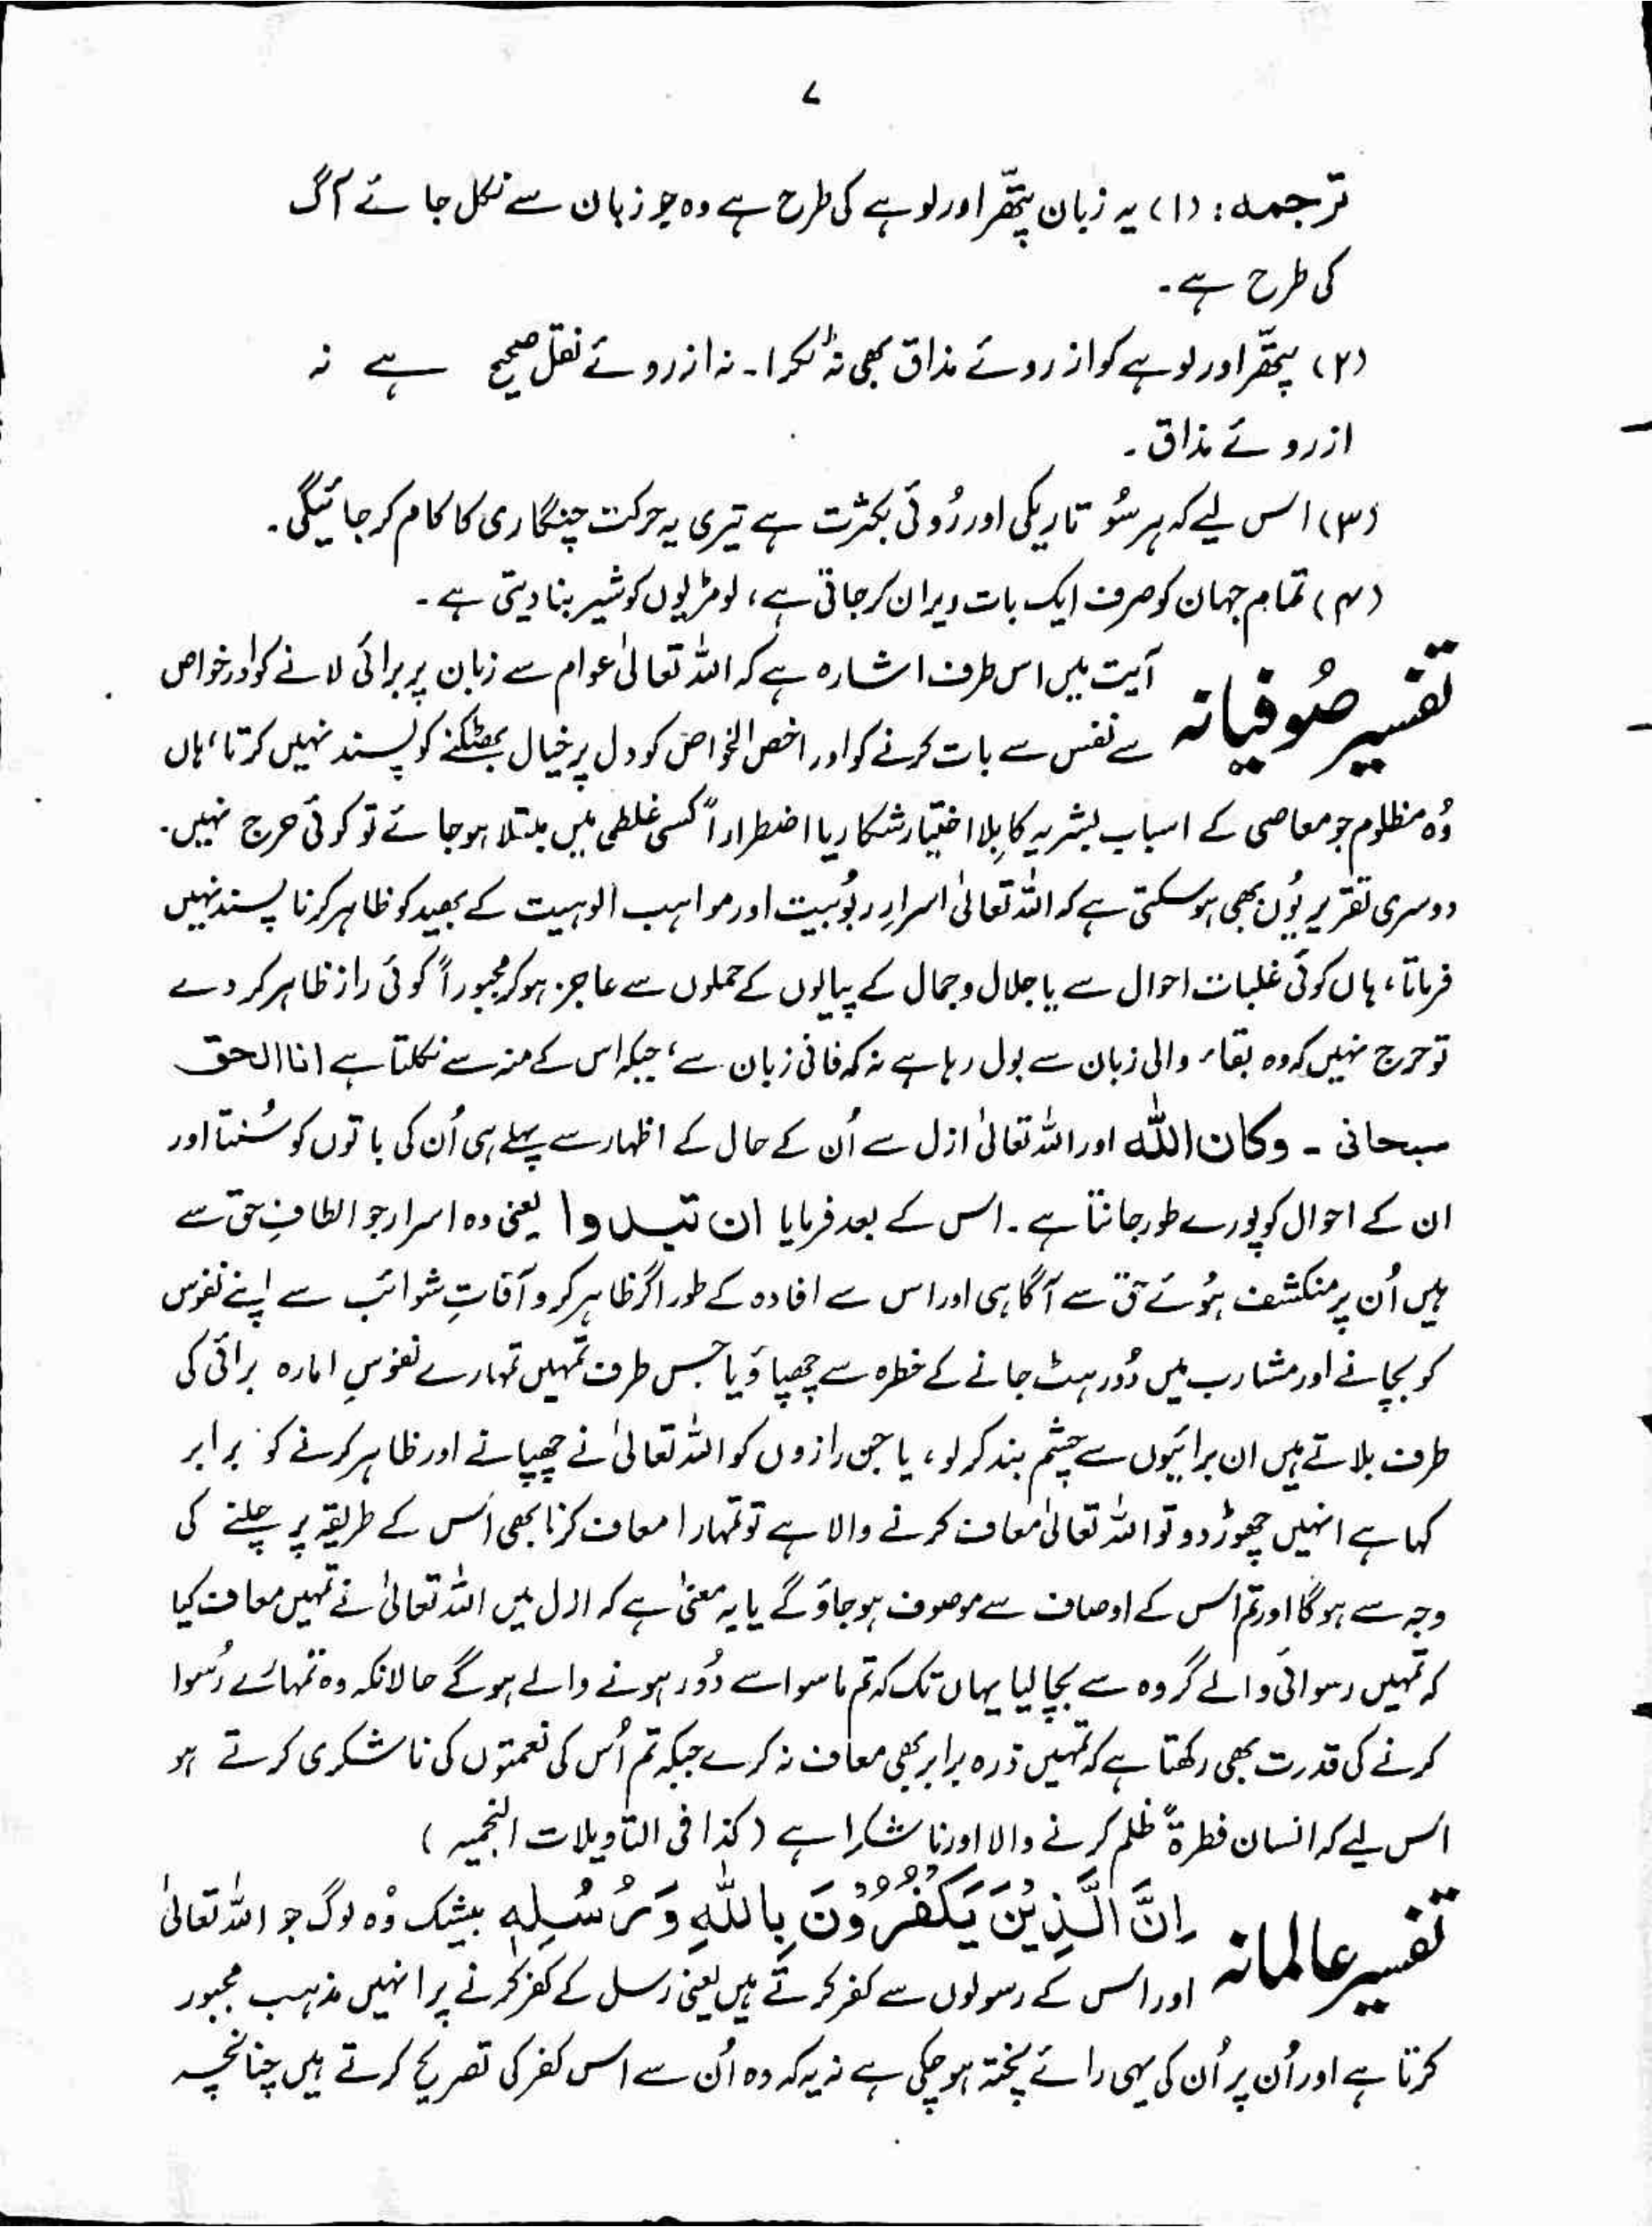 ۷
ترجمہ : (۱) یہ زبان پتّھر اور لوہے کی طرح ہے وہ جو زبان سے نکل جائے آگ
کی طرح ہے۔
(۲) پتّھر اور لوہے کو از روئے مذاق بھی نہ ٹکرا۔ نہ از روئے نقل صحیح ہے نہ
از روئے مذاق۔
(۳) اس لیے کہ ہر سُو تاریکی اور رُوئی بکثرت ہے تیری یہ حرکت چنگاری کا کام کر جائیگی۔
(۴) تمام جہان کو صرف ایک بات ویران کر جاتی ہے، لومڑیوں کو شیر بنا دیتی ہے۔
تفسیر صُوفیانہ آیت میں اس طرف اشارہ ہے کہ اللہ تعالیٰ عوام سے زبان پر برائی لانے کو اور خواص
سے نفس سے بات کرنے کو اور اخص الخواص کو دل پر خیال بھٹکنے کو پسند نہیں کرتا، ہاں
وُہ مظلوم جو معاصی کے اسباب بشریہ کا بِلا اختیار شکار یا اضطراراً کسی غلطی میں مبتلا ہو جائے تو کوئی حرج نہیں۔
دوسری تقریر یُوں بھی ہو سکتی ہے کہ اللہ تعالیٰ اسرارِ ربُوبیت اور مواہب الوہیت کے بھید کو ظاہر کرنا پسند نہیں
فرماتا، ہاں کوئی غلبات احوال سے یا جلال و جمال کے پیالوں کے حملوں سے عاجز ہو کر مجبوراً کوئی راز ظاہر کر دے
تو حرج نہیں کہ وہ بقاء والی زبان سے بول رہا ہے نہ کہ فانی زبان سے، جبکہ اس کے منہ سے نکلتا ہے انا الحق
سبحانی ۔ وکان اللہ اور اللہ تعالیٰ ازل سے اُن کے حال کے اظہار سے پہلے ہی اُن کی باتوں کو سُنتا اور
ان کے احوال کو پورے طور جانتا ہے۔ اس کے بعد فرمایا ان تبدوا یعنی وہ اسرار جو الطافِ حق سے
ہیں اُن پر منکشف ہُوئے حق سے آگاہی اور اس سے افادہ کے طور اگر ظاہر کرو آفاتِ شوائب سے اپنے نفوس
کو بچانے اور مشارب میں دُور ہٹ جانے کے خطرہ سے چھپاؤ یا جس طرف تمہیں تمہارے نفوسِ امارہ برائی کی
طرف بلاتے ہیں ان برائیوں سے چشم بند کر لو، یا جن رازوں کو اللہ تعالیٰ نے چھپانے اور ظاہر کرنے کو برابر
کہا ہے انہیں چھوڑ دو تو اللہ تعالیٰ معاف کرنے والا ہے تو تمہارا معاف کرنا بھی اُس کے طریقہ پر چلنے کی
وجہ سے ہوگا اور تم اُس کے اوصاف سے موصوف ہو جاؤ گے یا یہ معنیٰ ہے کہ ازل میں اللہ تعالیٰ نے تمہیں معاف کیا
کہ تمہیں رسوائی والے گروہ سے بچا لیا یہاں تک کہ تم ماسوا سے دُور ہونے والے ہو گے حالانکہ وہ تمہارے رُسوا
کرنے کی قدرت بھی رکھتا ہے کہ تمہیں ذرہ برابر بھی معاف نہ کرے جبکہ تم اُس کی نعمتوں کی ناشکری کرتے ہو
اس لیے کہ انسان فطرۃً ظلم کرنے والا اور ناشکرا ہے (کذا فی التأویلات النجمیہ)
تفسیر عالمانہ اِنَّ الَّذِیْنَ یَکْفُرُوْنَ بِاللّٰہِ وَرُسُلِہٖ بیشک وُہ لوگ جو اللہ تعالیٰ
اور اس کے رسولوں سے کفر کرتے ہیں یعنی رسل کے کفر کرنے پر انہیں مذہب مجبور
کرتا ہے اور اُن پر اُن کی یہی رائے پختہ ہو چکی ہے نہ یہ کہ وہ اُن سے اس کفر کی تصریح کرتے ہیں چنانچہ